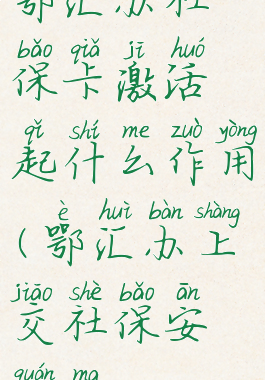 鄂汇办社
bǎo qiǎ jī huó
保卡激活
qǐ shí me zuò yòng
起什么作用
è huì bàn shàng
(鄂汇办上
jiāo shè bǎo ān
交社保安
quán ma